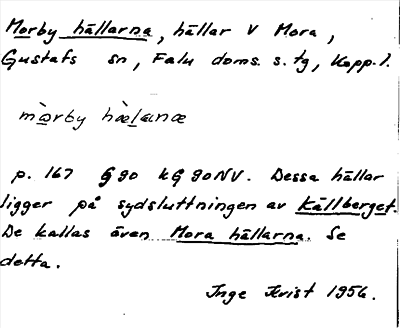 Morby hällarna, hällar V Mora,
Gustafs sn, Falu doms. s. tg, Kopp. l.
mòrby hæ̀lanæ
p. 167 § 90 kG 90NV. Dessa hällar
ligger på sydsluttningen av Källberget.
De kallas även Mora hällarna. Se
detta.
Inge Kvist 1956.